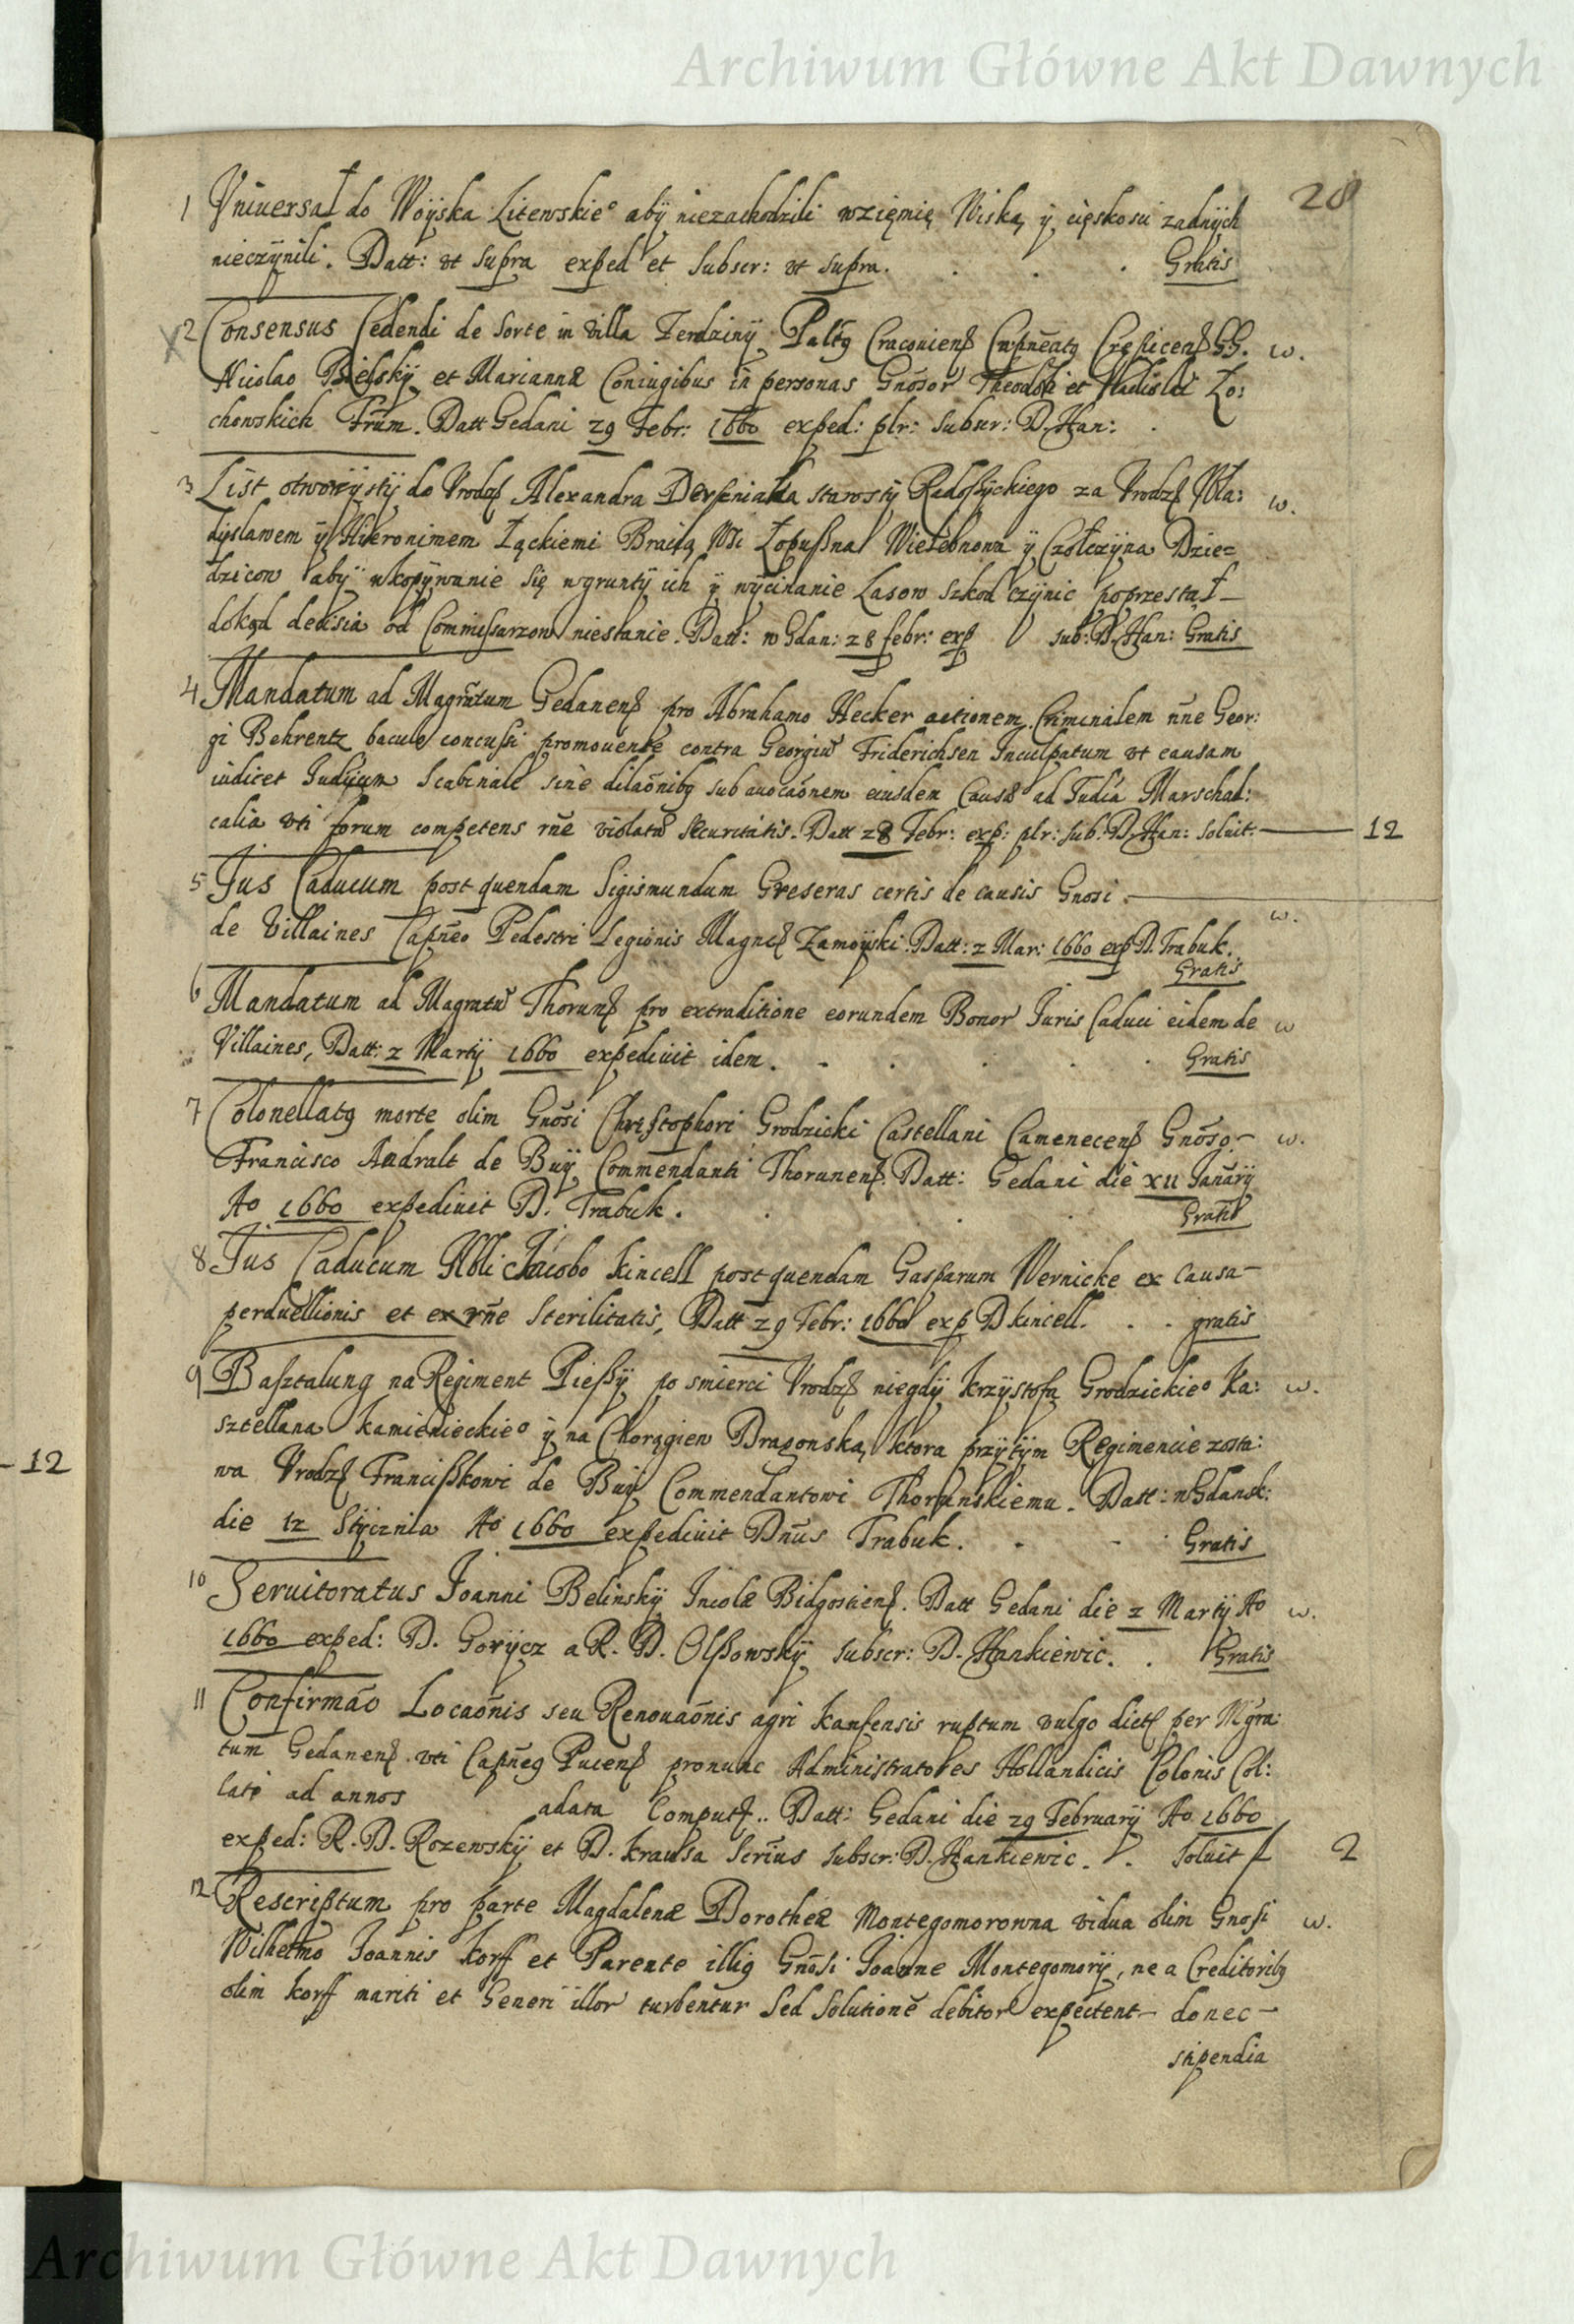 Archiwum Główne Akt Dawnych
28
1 Vniuersał do Woÿska Litewskie° abÿ niezachodzili wzięmię Wiską ÿ cięskosci zadnÿch
nieczÿnili. Datt: vt supra exped et subscr: vt supra. Gratis
2 Consensus Cedendi de sorte in villa Zerdzinÿ Craconiens GG. w.
Nicolao Bielskÿ et Mariannæ Coniugibus in personas Gnõsor Theodori et Vladislai Zo:
chowskich Frum. Datt Gedani 29 Febr: 1660 exped: plr: subscr: D. Han:
3 List otworÿstÿ do Vrodz Alexandra Derszniaka starostÿ Radoßÿckiego za Vrodz Wła: w.
dÿslawem ÿ Hieronimem Łąckiemi Bracią Wsi Łopußna Wielebnowa ÿ Czołczÿna Dzie=
dzicow abÿ wkopÿwanie się wgruntÿ ich ÿ wÿcinanie Lasow szkod czÿnic poprzestał
dokąd decisia od Commissarzow niestanie. Datt: w Gdan: 28 febr: exp sub: D. Han: Gratis
4 Mandatum ad Magrãtum Gedanens pro Abrahamo Hecker actionem Criminalem nñe Geor:
gi Behrentz bacule concussi promouente contra Georgiu Friderichsen Inculpatum vt causam
iudicet Iudicium Scabinale sine dilaõnibg sub auocaõnem eiusdem Causæ ad Iudia Marschal:
calia vti forum competens rñe violatu securitatis. Datt 28 Febr: exp: plr: sub: D. Han: soluit. 12
5 Jus Caducum post quendam Sigismundum Greseras certis de causis Gnosi.
de Villaines Capñeo Pedestri Legionis Magnif Zamoÿski. Datt: 2 Mar: 1660 exp D. Trabuk. w.
Gratis
6 Mandatum ad Magratu Thoruns pro extraditione eorundem Bonor Iuris Caduci eidem de w
Villaines, Datt: 2 Martÿ 1660 expediuit idem. Gratis
7 Colonellatg morte olim Gnõsi Christophori Grodzicki Castellani Camenecens Gnõso w.
Francisco Andralt de Buÿ Commendanti Thorunens. Datt: Gedani die XII Januarÿ
Ao 1660 expediuit D. Trabuk. Gratis
8 Jus Caducum Nbli Jacobo Kincell post quendam Gasparum Wernicke ex causa
perduellionis et ex rñe sterilitatis, Datt 29 Febr: 1660 exp D Kincell. gratis
9 Basztalung na Regiment Pießÿ po smierci Vrodz niegdÿ Krzÿstofa Grodzickie° Ka: w.
sztellana Kamienieckie° ÿ na Chorągiew Dragonską ktora przÿtÿm Regimencie zosta:
wa Vrodz Francißkowi de Buÿ Commendantowi Thorunskiemu. Datt: w Gdansk:
die 12 Stÿcznia Ao 1660 expediuit Dnus Trabuk. Gratis
10 Seruitoratus Joanni Belinskÿ Incolæ Bidgostiens. Datt Gedani die 2 Martÿ Ao w.
1660 exped: D. Gorÿcz a R. D. Olßowskÿ subscr: D. Hankiewic. Gratis
11 Confirmão Locaõnis seu Renouaõnis agri Kanfensis ruptum vulgo dict per Mgra:
tum Gedanens vti Capñeg Pucens pronunc Administratores Hollandicis Colonis Col:
lati ad annos adata Comput.. Datt: Gedani die 29 Februarÿ Ao 1660
exped: R. D. Rozewskÿ et D. Krausa Scrius subscr: D. Hankiewic. Soluit 2
12 Rescriptum pro parte Magdalenæ Dorotheæ Montegomorowna vidua olim Gnosi w.
Wilhelmo Joannis Korff et Parente illig Gnõsi Joanne Montegomorÿ, ne a Creditoribg
olim Korff mariti et Generi illor turbentur sed solutionẽ debitor expectent donec
stipendia
12
Archiwum Główne Akt Dawnych